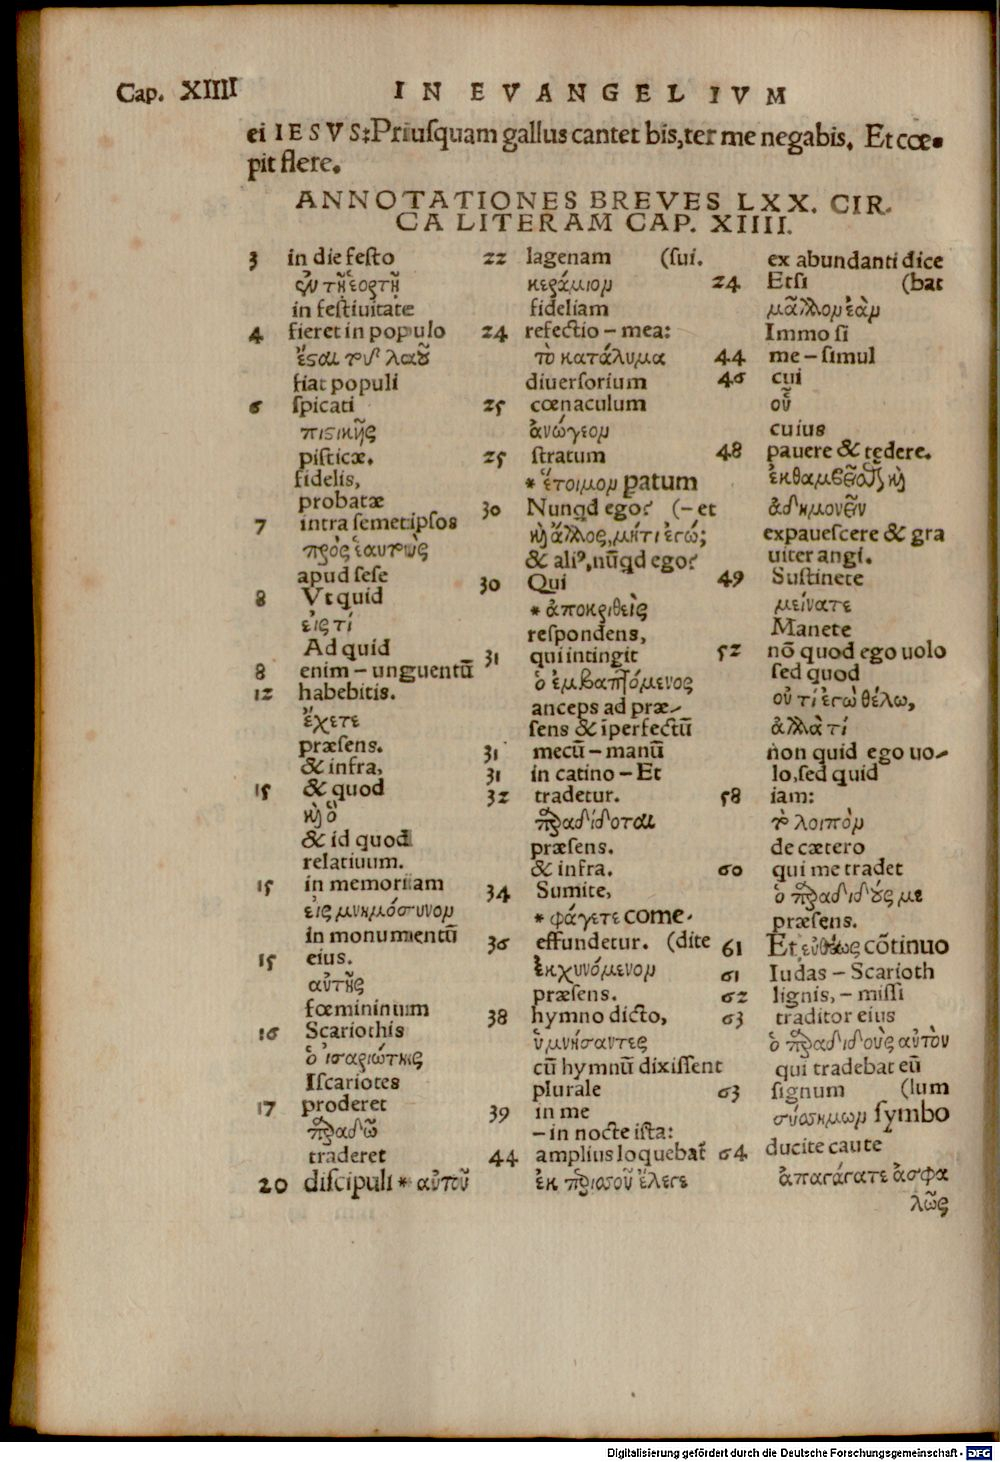 Cap. XIIII
IN EVANGELIVM
ei IESVS: Priusquam gallus cantet bis, ter me negabis. Et cœ-
pit flere.
ANNOTATIONES BREVES LXX. CIR-
CA LITERAM CAP. XIIII.
3 in die festo
ἐν τῇ ἑορτῇ
in festiuitate
4 fieret in populo
ἔσαι τοῦ λαοῦ
fiat populi
6 spicati
πιστικῆς
pisticæ.
fidelis,
probatæ
7 intra semetipsos
πρὸς ἑαυτοὺς
apud sese
8 Vt quid
εἰς τί
Ad quid
8 enim – unguentū
12 habebitis.
ἔχετε
præsens.
& infra,
15 & quod
καὶ ὃ
& id quod
relatiuum.
15 in memoriam
εἰς μνημόσυνον
in monumentū
15 eius.
αὐτῆς
fœmininum
16 Scariothis
ὁ ἰσαριώτης
Iscariotes
17 proderet
παραδῶ
traderet
20 discipuli * αὐτοῦ
22 lagenam (sui.
κεράμιον
fideliam
24 refectio – mea:
τὸ κατάλυμα
diuersorium
25 cœnaculum
ἀνώγεον
25 stratum
* ἕτοιμον paratum
30 Nunqd ego? (– et
καὶ ἄλλος, μήτι ἐγώ;
& aliꝰ, nūqd ego?
30 Qui
* ἀποκριθεὶς
respondens,
31 qui intingit
ὁ ἐμβαπτόμενος
anceps ad præ-
sens & īperfectū
31 mecū – manū
31 in catino – Et
32 tradetur.
παραδίδοται
præsens.
& infra.
34 Sumite,
* φάγετε come-
36 effundetur. (dite
ἐκχυνόμενον
præsens.
38 hymno dicto,
ὑμνήσαντες
cū hymnū dixissent
plurale
39 in me
– in nocte ista:
44 amplius loquebat̄
ἐκ περισσοῦ ἔλεγε
ex abundanti dice
24 Etsi (bat
μᾶλλον ἐὰν
Immo si
44 me – simul
46 cui
οὗ
cuius
48 pauere & tędere.
ἐκθαμβεῖσθαι καὶ
ἀδημονεῖν
expauescere & gra
uiter angi.
49 Sustinete
μείνατε
Manete
52 nō quod ego uolo
sed quod
οὐ τί ἐγὼ θέλω,
ἀλλὰ τί
non quid ego uo-
lo, sed quid
58 iam:
τὸ λοιπὸν
de cætero
60 qui me tradet
ὁ παραδιδούς με
præsens.
61 Et εὐθέως cōtinuo
61 Iudas – Scarioth
62 lignis, – missi
63 traditor eius
ὁ παραδιδοὺς αὐτὸν
qui tradebat eū
63 signum (lum
σύσσημον symbo
64 ducite caute
ἀπαγάγατε ἀσφα
λῶς
Digitalisierung gefördert durch die Deutsche Forschungsgemeinschaft - DFG